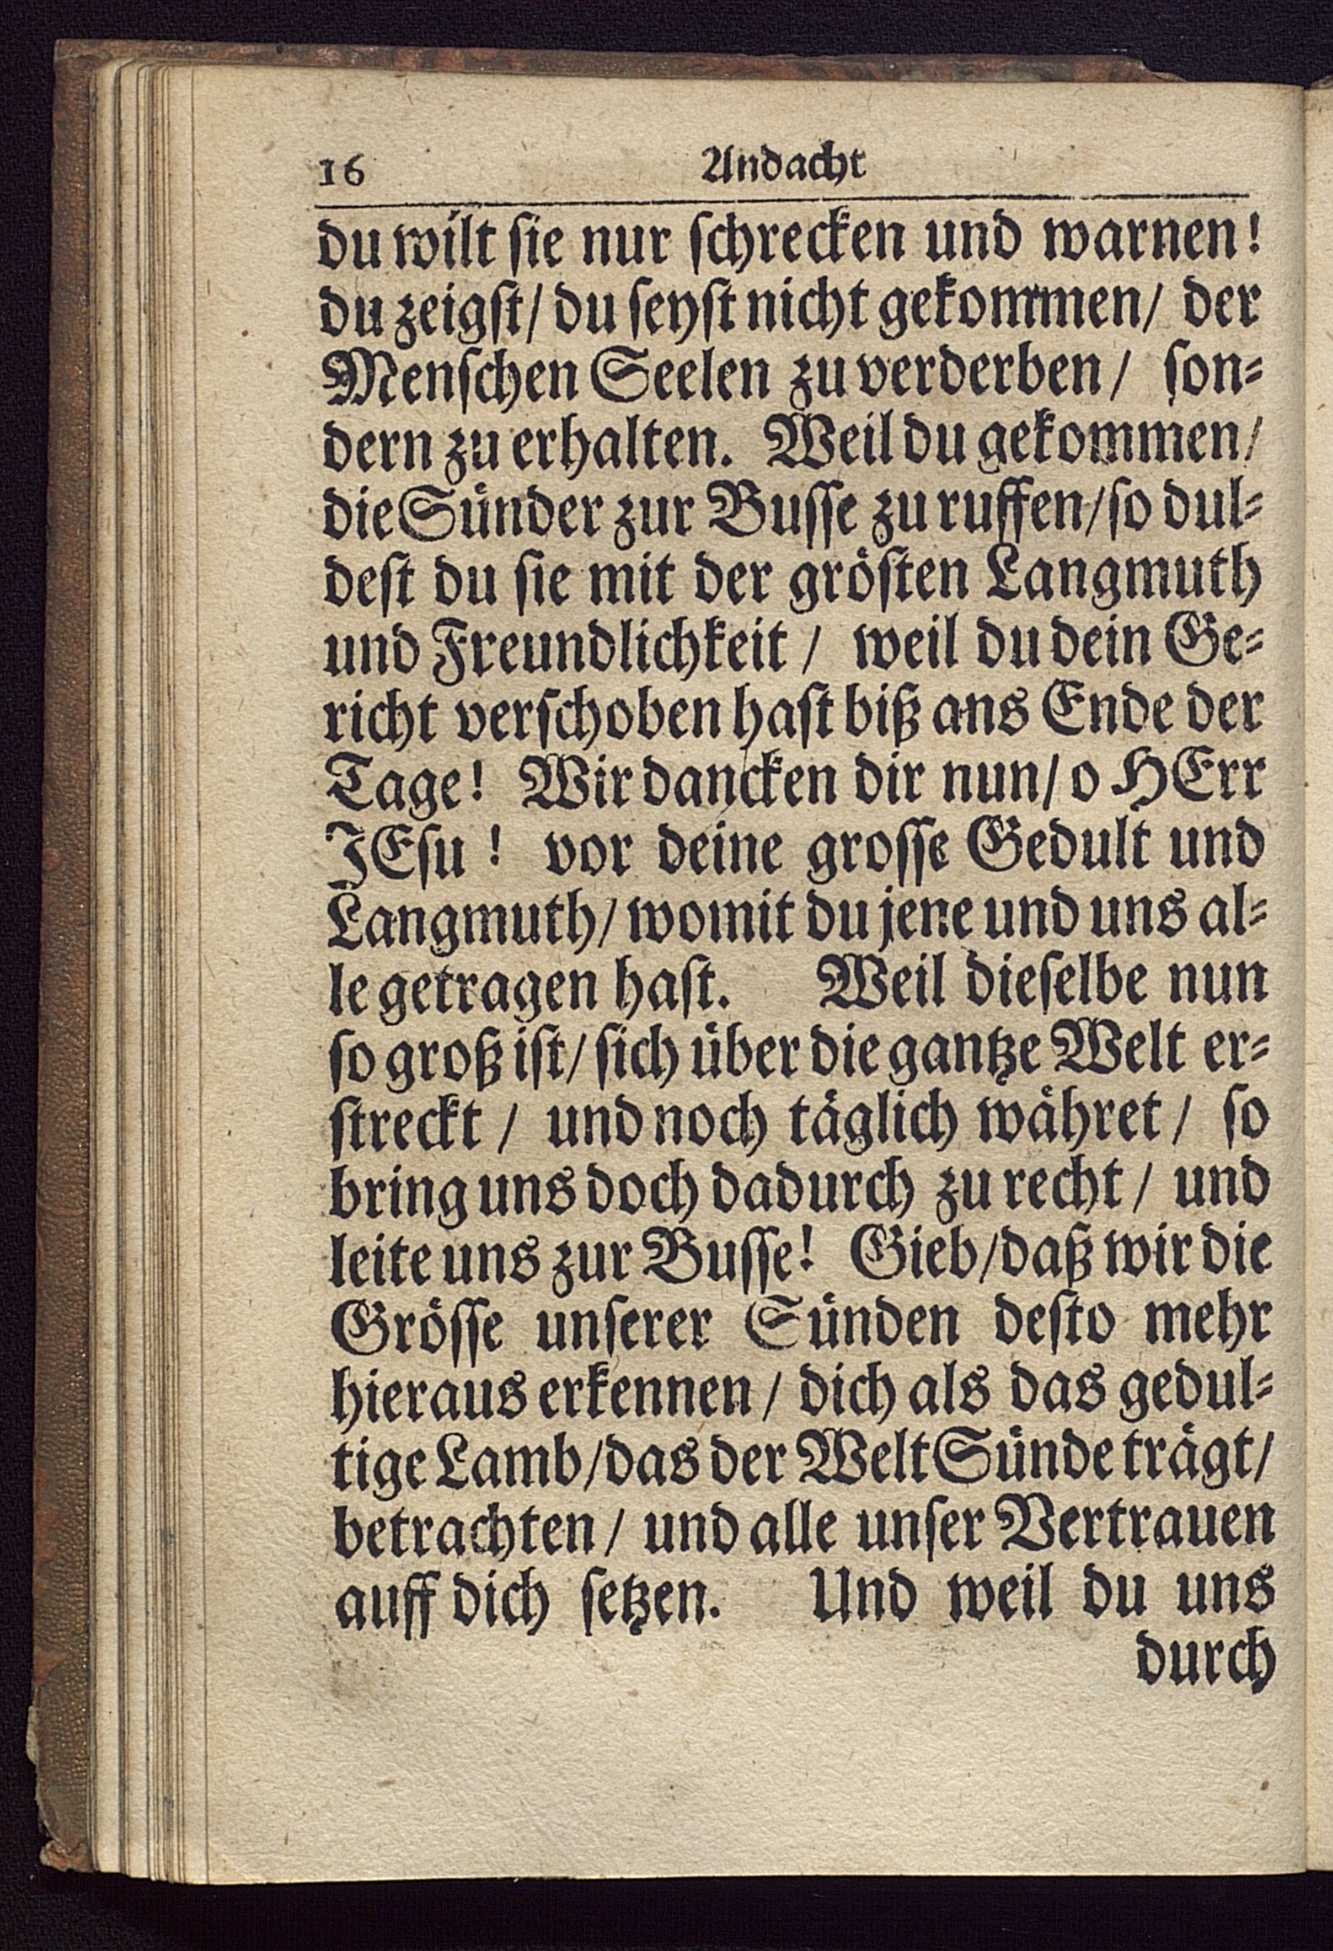 16 Andacht
du wilt sie nur schrecken und warnen!
du zeigst/ du seyst nicht gekommen/ der
Menschen Seelen zu verderben/ son-
dern zu erhalten. Weil du gekommen/
die Sünder zur Busse zu ruffen/ so dul-
dest du sie mit der grösten Langmuth
und Freundlichkeit/ weil du dein Ge-
richt verschoben hast biß ans Ende der
Tage! Wir dancken dir nun/ o HErr
JEsu! vor deine grosse Gedult und
Langmuth/ womit du jene und uns al-
le getragen hast. Weil dieselbe nun
so groß ist/ sich über die gantze Welt er-
streckt/ und noch täglich währet/ so
bring uns doch dadurch zu recht/ und
leite uns zur Busse! Gieb/ daß wir die
Grösse unserer Sünden desto mehr
hieraus erkennen/ dich als das gedul-
tige Lamb/ das der Welt Sünde trägt/
betrachten/ und alle unser Vertrauen
auff dich setzen. Und weil du uns
durch